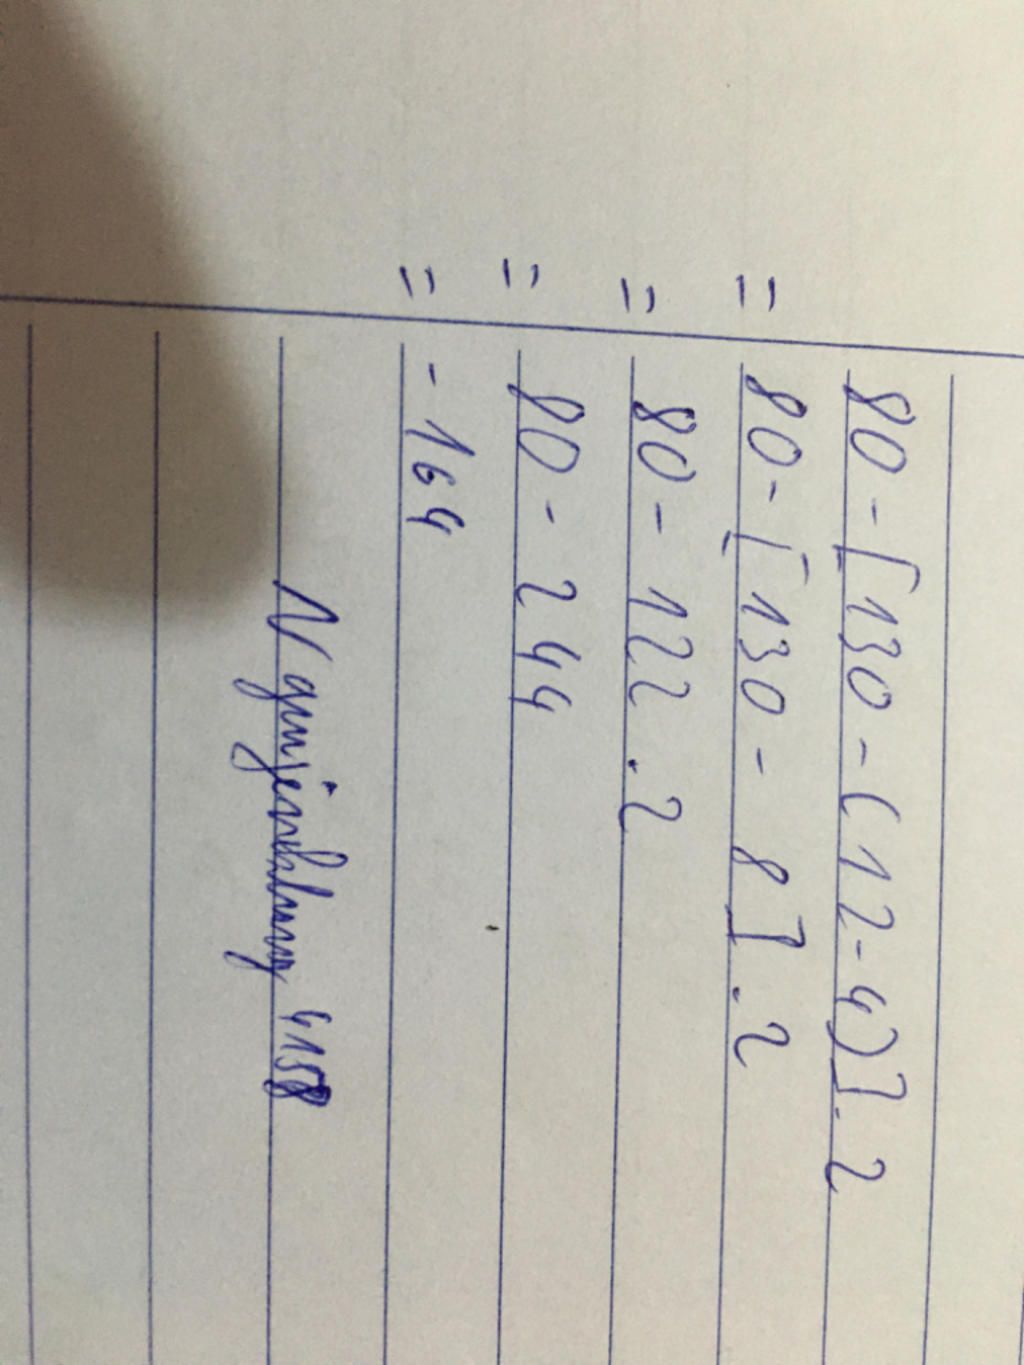 80 - [130 - (12 - 4)] . 2
= 80 - [130 - 8] . 2
= 80 - 122 . 2
= 80 - 244
= - 164
Nguyenhhmy 4158